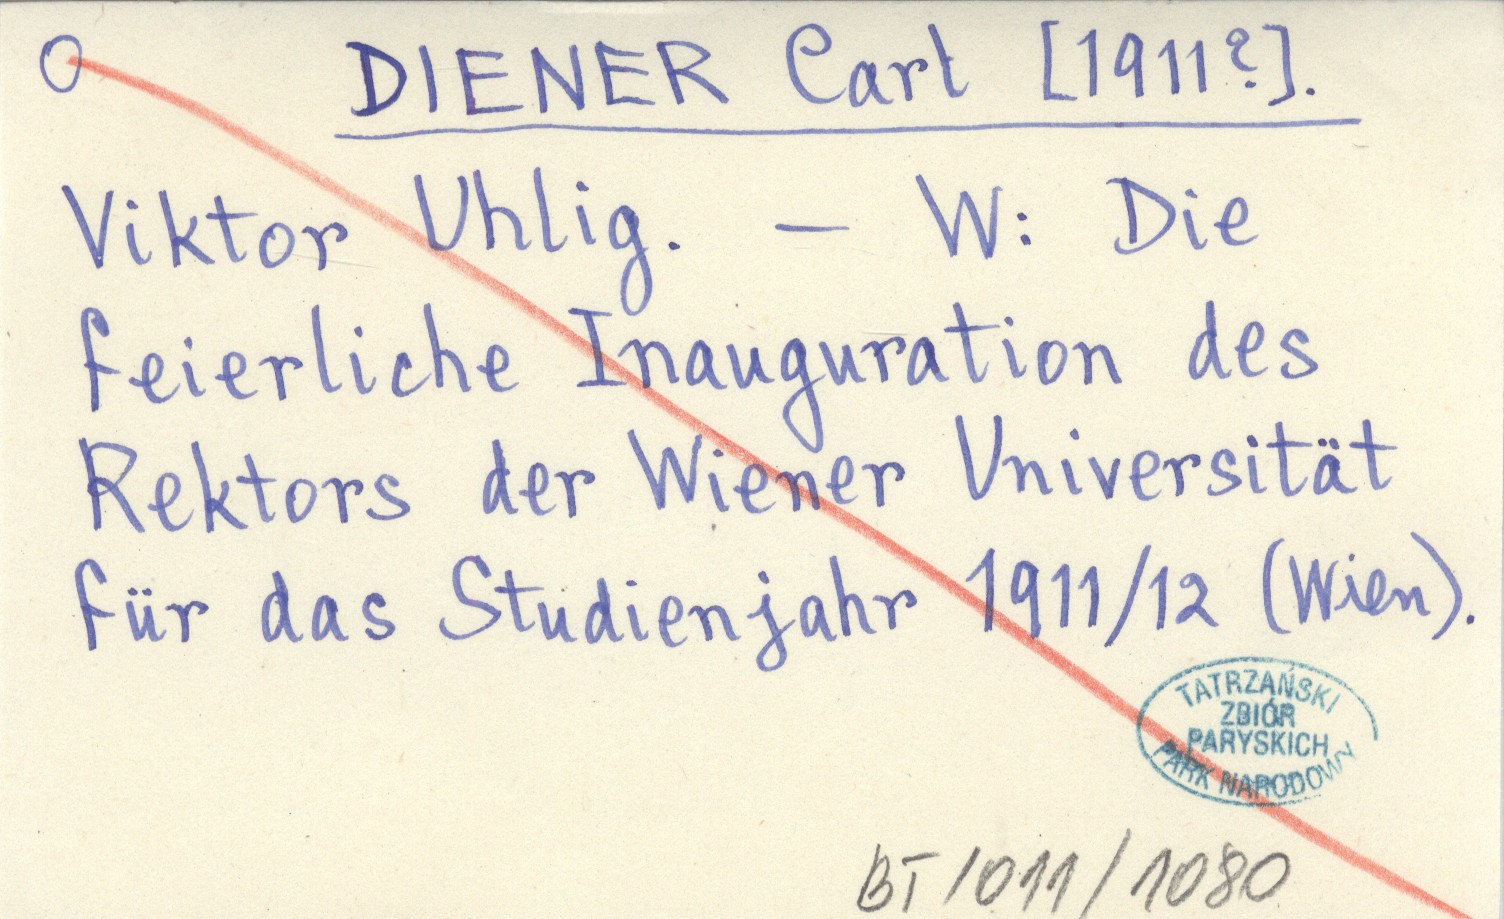 O DIENER Carl [1911?].
Viktor Uhlig. — W: Die
feierliche Inauguration des
Rektors der Wiener Universität
für das Studienjahr 1911/12 (Wien).
TATRZAŃSKI
ZBIÓR
PARYSKICH
PARK NARODOWY
BT/011/1080